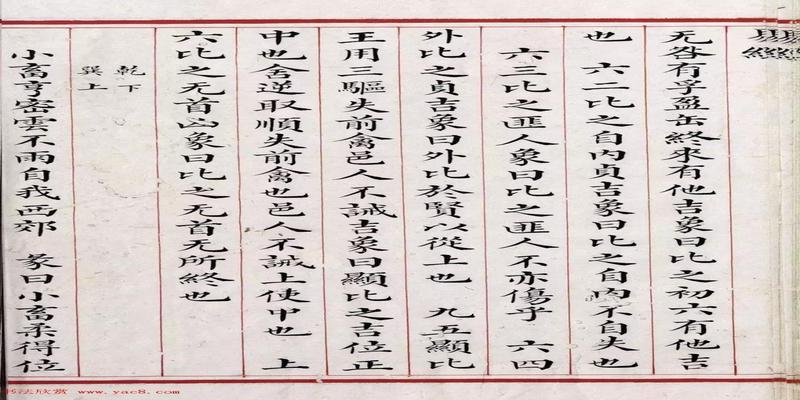 无咎有孚盈缶終來有他吉象曰比之初六有他吉
也 六二比之自内貞吉象曰比之自内不自失也
六三比之匪人象曰比之匪人不亦傷乎 六四
外比之貞吉象曰外比於賢以從上也 九五顯比
王用三驅失前禽邑人不誡吉象曰顯比之吉位正
中也舍逆取順失前禽也邑人不誡上使中也 上
六比之无首凶象曰比之无首无所終也
乾下
巽上
小畜亨密雲不雨自我西郊 彖曰小畜柔得位
书法欣赏 www.yac8.com